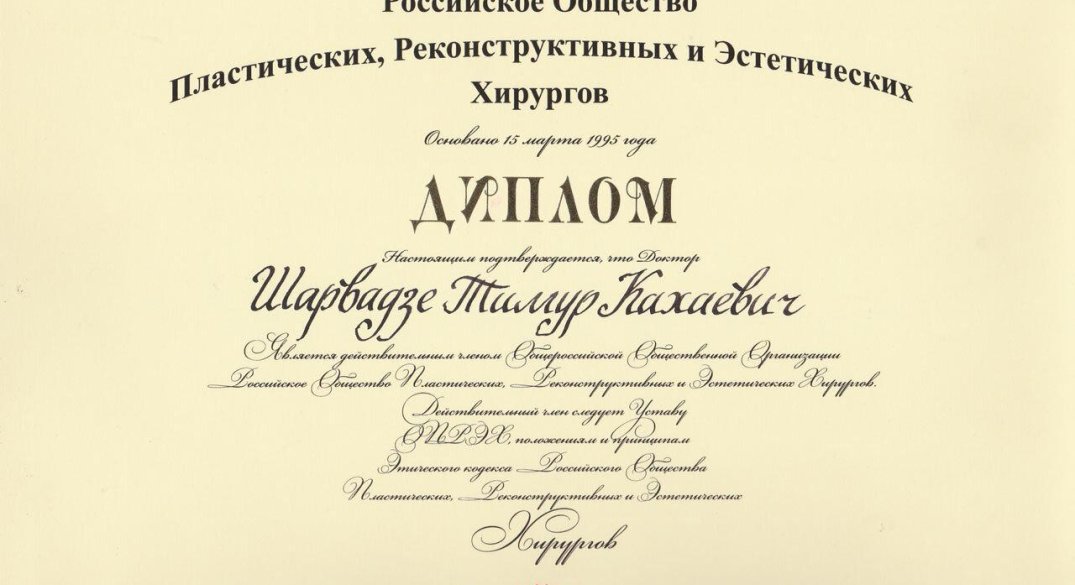 Российское Общество
Пластических, Реконструктивных и Эстетических
Хирургов
Основано 15 марта 1995 года
ДИПЛОМ
Настоящим подтверждается, что Доктор
Шарвадзе Тимур Кахаевич
Является действительным членом Общероссийской Общественной Организации
Российское Общество Пластических, Реконструктивных и Эстетических Хирургов.
Действительный член следует Уставу
ОПРЭХ, положениям и принципам
Этического кодекса Российского Общества
Пластических, Реконструктивных и Эстетических
Хирургов